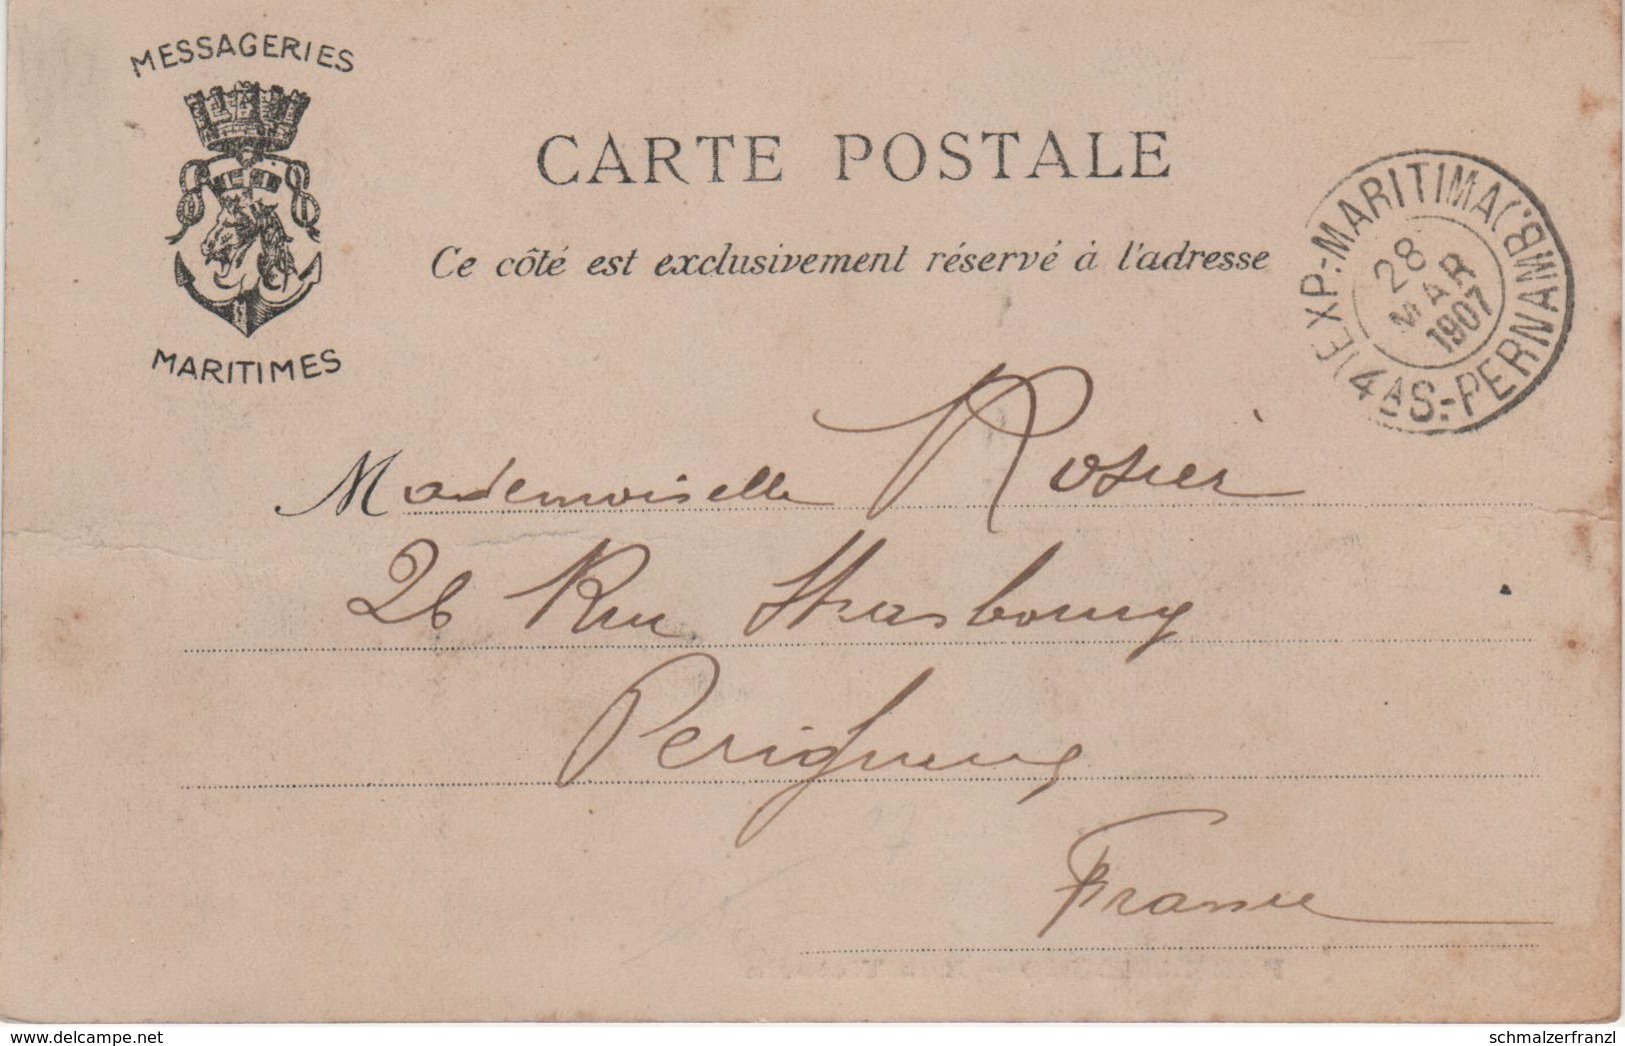 MESSAGERIES
MARITIMES
CARTE POSTALE
Ce côté est exclusivement réservé à l'adresse
(EXP.-MARITIMA)(BMB.
28
MAR
1907
4 AS-PERNAMB.
Mademoiselle Rosier
26 Rue Strasbourg
Perigueux
France
www.delcampe.net
schmalzerfranzl